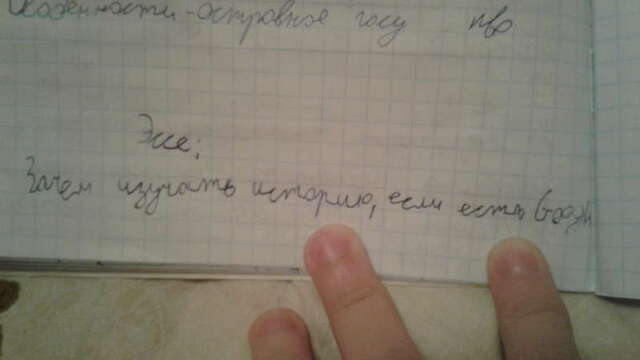 Особенности-островное госу
Эссе:
Зачем изучать историю, если есть